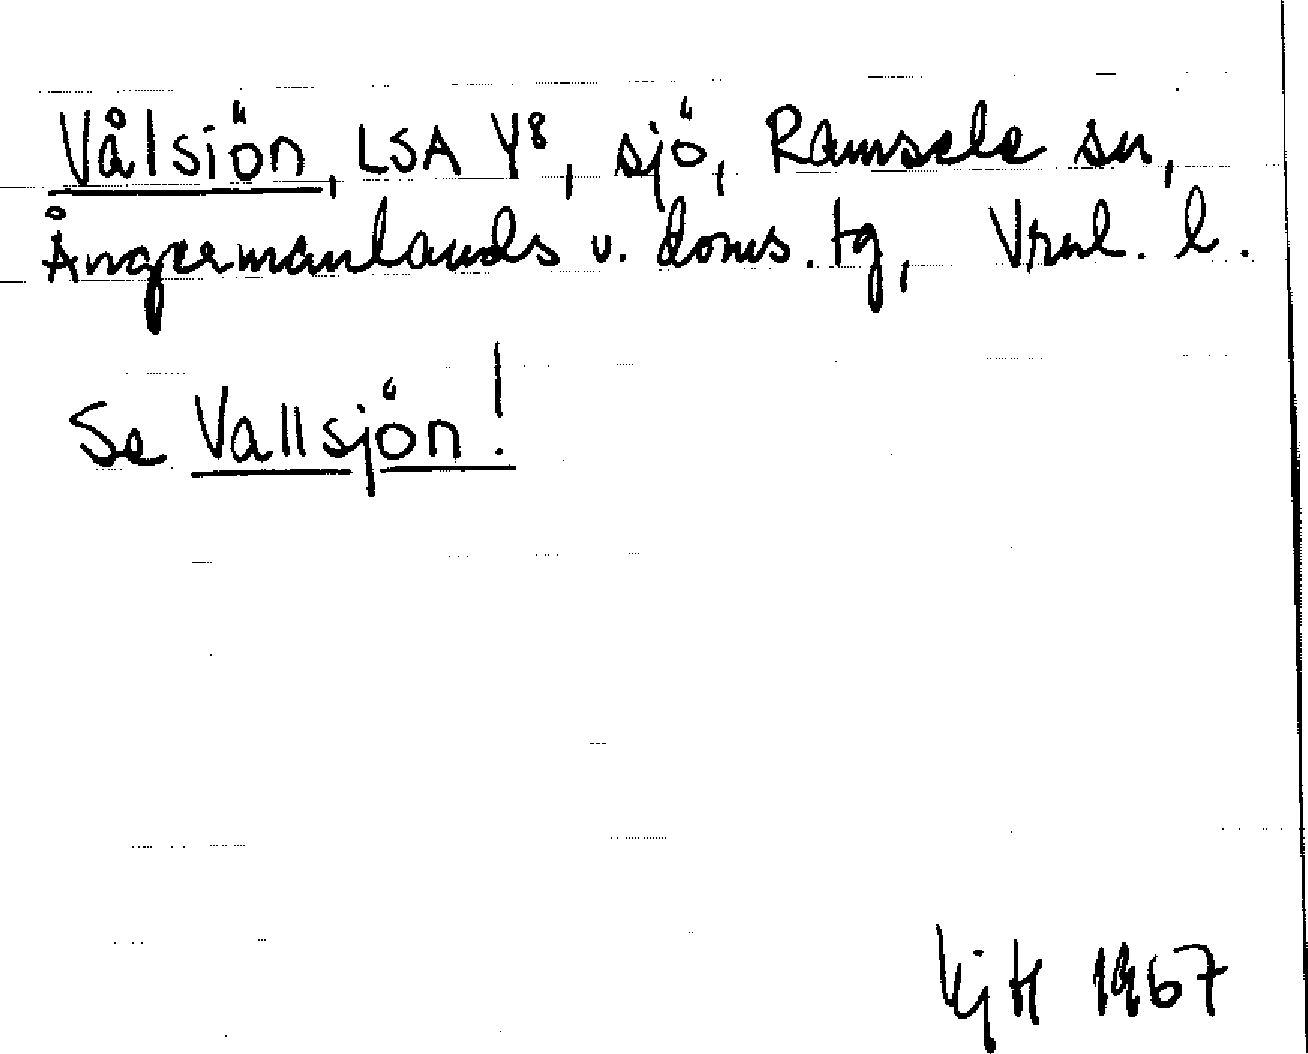 Vålsiön, LSA Y8, sjö, Ramsele sn,
Ångermanlands v. doms. tg, Vrnl. l.
Se Vallsjön!
1967